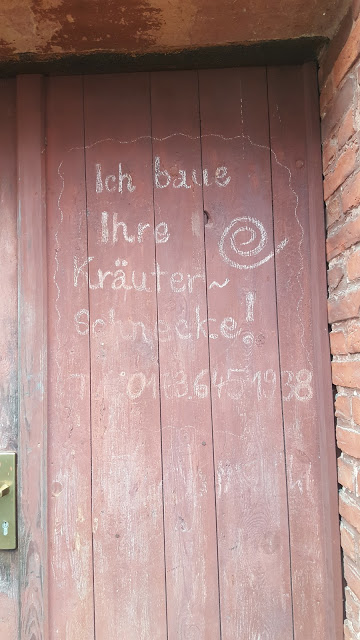 Ich baue
Ihre
Kräuter~
schnecke!